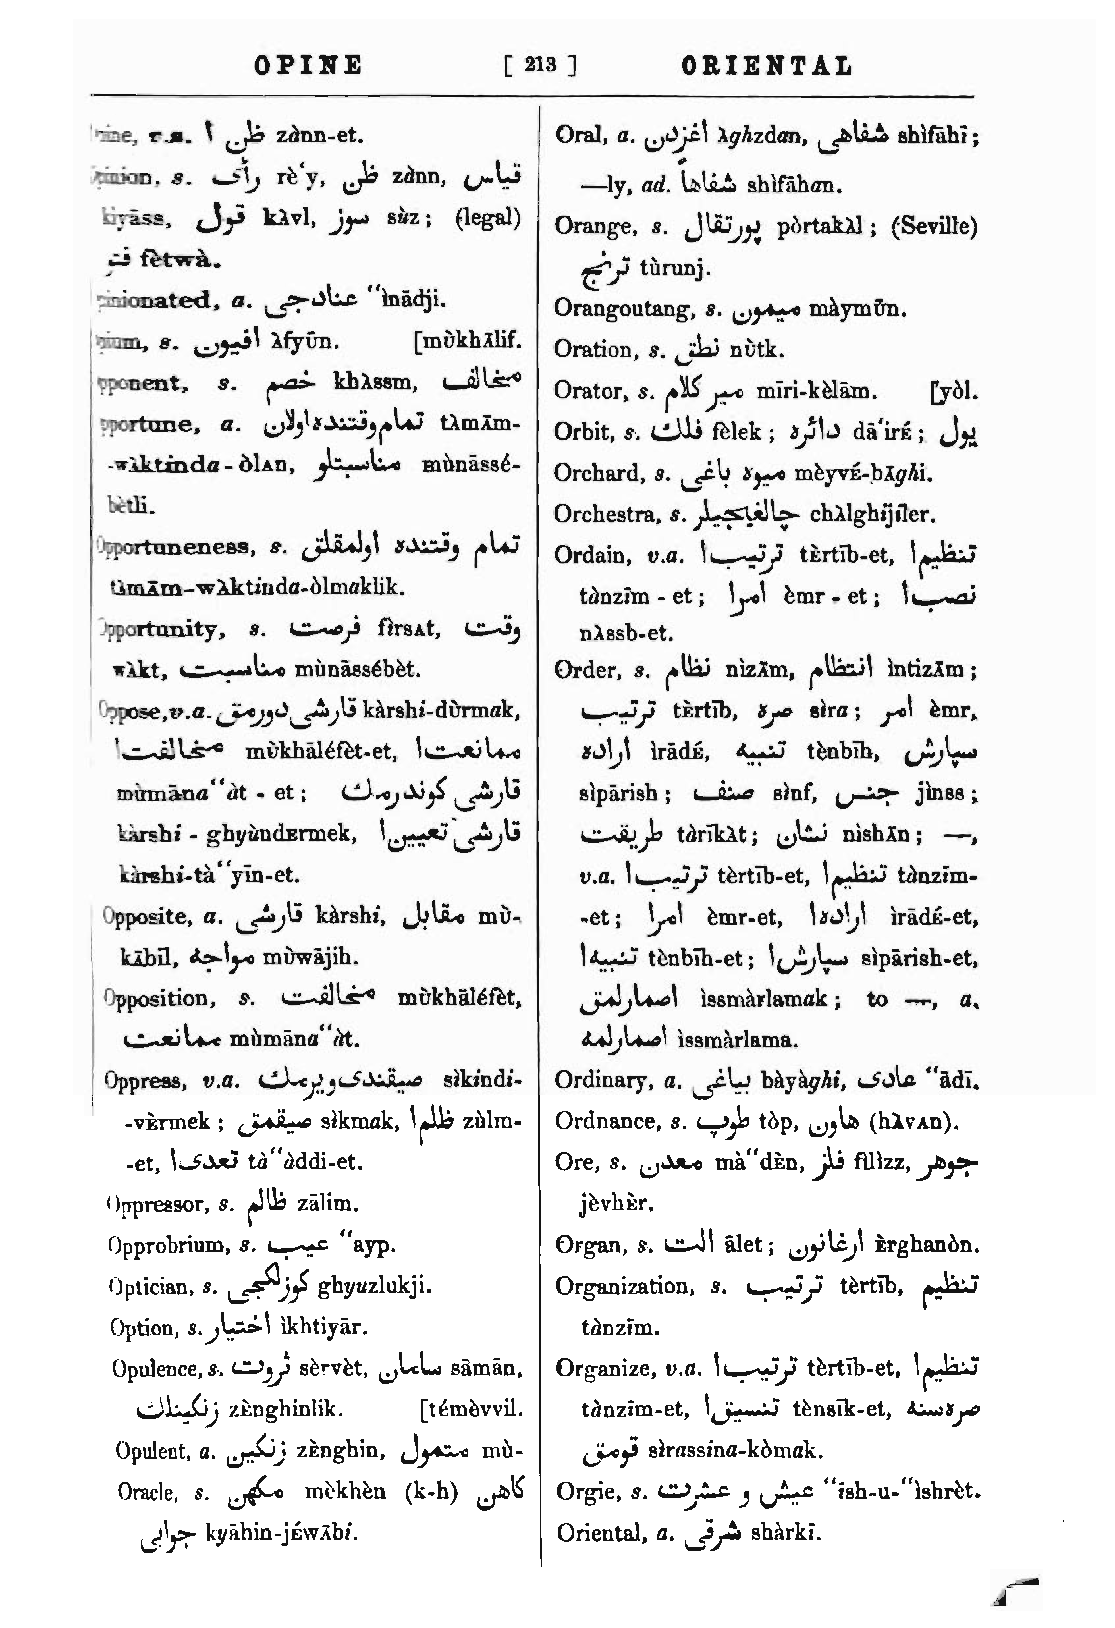 OPINE [ 213 ] ORIENTAL
v.a. ظن ا zànn-et.
s. رأى rè‘y, ظن zànn, قياس
kiyāss, قول kλvl, سوز sùz; (legal)
fètwà.
a. عنادجى “ìnādji.
s. افيون λfyūn. [mùkhλlif.
Opponent, s. خصم khλssm, مخالف
Opportune, a. تمام وقتنده اولان tλmλm-
-wλktinda-òlAn, مناسبتلو mùnāssé-
bètli.
Opportuneness, s. تمام وقتنده اولمقلق
tλmλm-wλktinda-òlmaklik.
Opportunity, s. فرصت fìrsAt, وقت
wλkt, مناسبت mùnāssébèt.
Oppose, v.a. قارشى دورمق kàrshi-dùrmak,
مخالفت ا mùkhāléfèt-et, ممانعت ا
mùmāna“àt - et; قارشى كوندرمك
kàrshi - ghyùndErmek, قارشى تعيين ا
kàrshi-tà“yīn-et.
Opposite, a. قارشى kàrshi, مقابل mù-
kābīl, مواجه mùwājih.
Opposition, s. مخالفت mùkhāléfèt,
ممانعت mùmāna“àt.
Oppress, v.a. صيقندى ويرمك sìkindi-
-vÈrmek; صيقمق sìkmak, ظلم ا zùlm-
-et, تعدى ا tà“àddi-et.
Oppressor, s. ظالم zālim.
Opprobrium, s. عيب “ayp.
Optician, s. كوزلكجى ghyuzlukji.
Option, s. اختيار ìkhtiyār.
Opulence, s. ثروت sèrvèt, سامان sāmān,
زنكينلك zÈnghinlik. [témèvvil.
Opulent, a. زنكين zÈnghin, متمول mù-
Oracle, s. مكهن mèkhèn (k-h) كاهن
جوابى kyāhin-jÉwλbi.
Oral, a. اغزدن λghzdan, شفاهى shìfāhī;
—ly, ad. شفاها shìfāhan.
Orange, s. پورتقال pòrtakλl; (Seville)
ترنج tùrunj.
Orangoutang, s. ميمون màymūn.
Oration, s. نطق nùtk.
Orator, s. مير كلام mīri-kèlām. [yòl.
Orbit, s. فلك fèlek; دائره dā‘irÉ; يول
Orchard, s. ميوه باغى mèyvÉ-bλghi.
Orchestra, s. چالغيجيلر chλlghijīler.
Ordain, v.a. ترتيب ا tÈrtīb-et, تنظيم ا
tànzīm - et; امر ا èmr - et; نصب ا
nλssb-et.
Order, s. نظام nìzλm, انتظام ìntizλm;
ترتيب tÈrtīb, صره sìra; امر èmr,
اراده ìrādÉ, تنبيه tènbīh, سپارش
sìpārish; صنف sìnf, جنس jìnss;
طريقت tàrīkλt; نشان nìshλn; —,
v.a. ترتيب ا tèrtīb-et, تنظيم ا tànzīm-
-et; امر ا èmr-et, اراده ا ìrādÉ-et,
تنبيه ا tènbīh-et; سپارش ا sìpārish-et,
اصمارلمق ìssmàrlamak; to —, a.
اصمارلمه ìssmàrlama.
Ordinary, a. بياغى bàyàghi, عادى “ādī.
Ordnance, s. طوپ tòp, هاون (hλvAn).
Ore, s. معدن mà“dÈn, فلز fìlìzz, جوهر
jèvhÈr.
Organ, s. آلت ālet; ارغانون Èrghanòn.
Organization, s. ترتيب tèrtīb, تنظيم
tànzīm.
Organize, v.a. ترتيب ا tèrtīb-et, تنظيم ا
tànzīm-et, تنسيق ا tènsīk-et, صره سنه
قومق sìrassina-kòmak.
Orgie, s. عيش و عشرت “īsh-u-“ìshrèt.
Oriental, a. شرقى shàrkī.